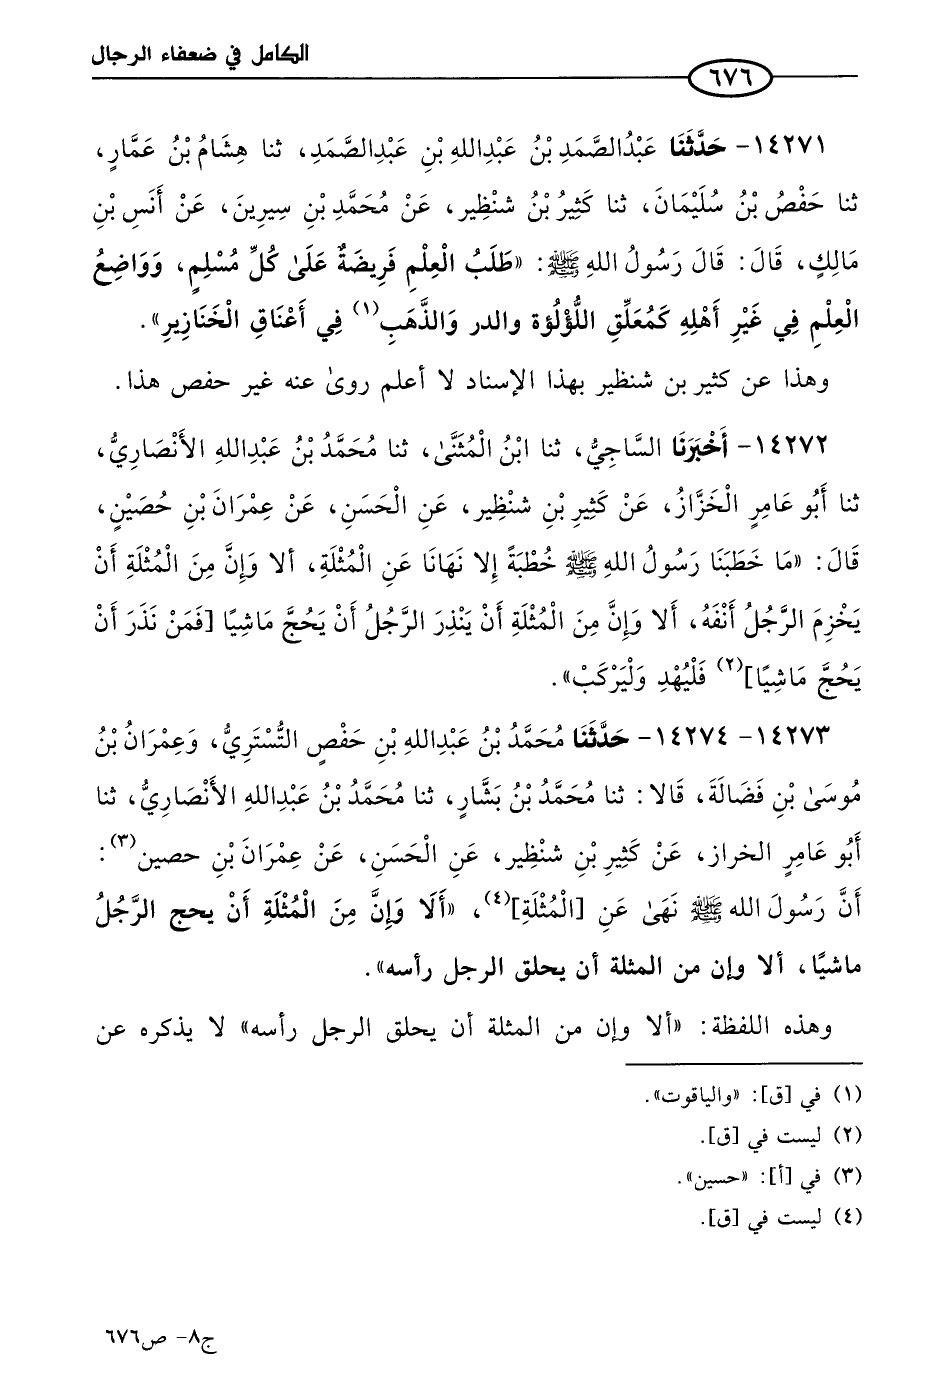 الكامل في ضعفاء الرجال
٦٧٦
١٤٢٧١- حَدَّثَنَا عَبْدُالصَّمَدِ بْنُ عَبْدِاللهِ بْنِ عَبْدِالصَّمَدِ، ثنا هِشَامُ بْنُ عَمَّارٍ،
ثنا حَفْصُ بْنُ سُلَيْمَانَ، ثنا كَثِيرُ بْنُ شنْظِير، عَنْ مُحَمَّدِ بْنِ سِيرِينَ، عَنْ أَنَسِ بْنِ
مَالِكٍ، قَالَ: قَالَ رَسُولُ اللهِ ﷺ: «طَلَبُ الْعِلْمِ فَرِيضَةٌ عَلَىٰ كُلِّ مُسْلِمٍ، وَوَاضِعُ
الْعِلْمِ فِي غَيْرِ أَهْلِهِ كَمُعَلِّقِ اللُّؤْلُؤة والدر وَالذَّهَبِ(١) فِي أَعْنَاقِ الْخَنَازِيرِ».
وهذا عن كثير بن شنظير بهذا الإسناد لا أعلم روىٰ عنه غير حفص هذا.
١٤٢٧٢- أَخْبَرَنَا السَّاجِيُّ، ثنا ابْنُ الْمُثَنَّىٰ، ثنا مُحَمَّدُ بْنُ عَبْدِاللهِ الأَنْصَارِيُّ،
ثنا أَبُو عَامِرٍ الْخَزَّازُ، عَنْ كَثِيرِ بْنِ شنْظِير، عَنِ الْحَسَنِ، عَنْ عِمْرَانَ بْنِ حُصَيْنٍ،
قَالَ: «مَا خَطَبَنَا رَسُولُ اللهِ ﷺ خُطْبَةً إِلا نَهَانَا عَنِ الْمُثْلَةِ، ألا وَإِنَّ مِنَ الْمُثْلَةِ أَنْ
يَخْزِمَ الرَّجُلُ أَنْفَهُ، أَلا وَإِنَّ مِنَ الْمُثْلَةِ أَنْ يَنْذِرَ الرَّجُلُ أَنْ يَحُجَّ مَاشِيًا [فَمَنْ نَذَرَ أَنْ
يَحُجَّ مَاشِيًا](٢) فَلْيُهْدِ وَلْيَرْكَبْ».
١٤٢٧٣- ١٤٢٧٤- حَدَّثَنَا مُحَمَّدُ بْنُ عَبْدِاللهِ بْنِ حَفْصٍ التُّسْتَرِيُّ، وَعِمْرَانُ بْنُ
مُوسَىٰ بْنِ فَضَالَةَ، قَالا: ثنا مُحَمَّدُ بْنُ بَشَّارٍ، ثنا مُحَمَّدُ بْنُ عَبْدِاللهِ الأَنْصَارِيُّ، ثنا
أَبُو عَامِرٍ الخراز، عَنْ كَثِيرِ بْنِ شنْظِير، عَنِ الْحَسَنِ، عَنْ عِمْرَانَ بْنِ حصين(٣):
أَنَّ رَسُولَ الله ﷺ نَهَىٰ عَنِ [الْمُثْلَةِ](٤)، «أَلَا وَإِنَّ مِنَ الْمُثْلَةِ أَنْ يحج الرَّجُلُ
ماشيًا، ألا وإن من المثلة أن يحلق الرجل رأسه».
وهذه اللفظة: «ألا وإن من المثلة أن يحلق الرجل رأسه» لا يذكره عن
(١) في [ق]: «والياقوت».
(٢) ليست في [ق].
(٣) في [أ]: «حسين».
(٤) ليست في [ق].
ج٨- ص٦٧٦